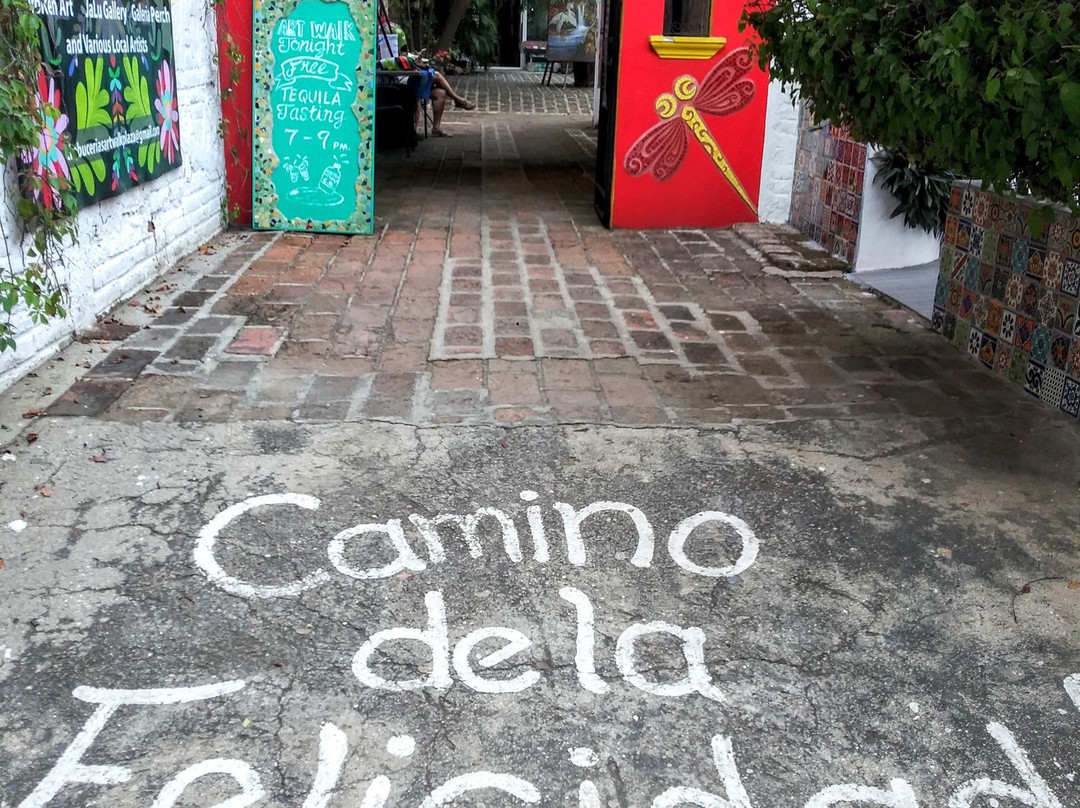 Art · JaLu Gallery · Galeria Perch
and Various Local Artists
buceriasartwalkplaza@gmail.com
ART WALK
Tonight
Free
TEQUILA
Tasting
7-9 PM.
Camino
de la
Felicidad